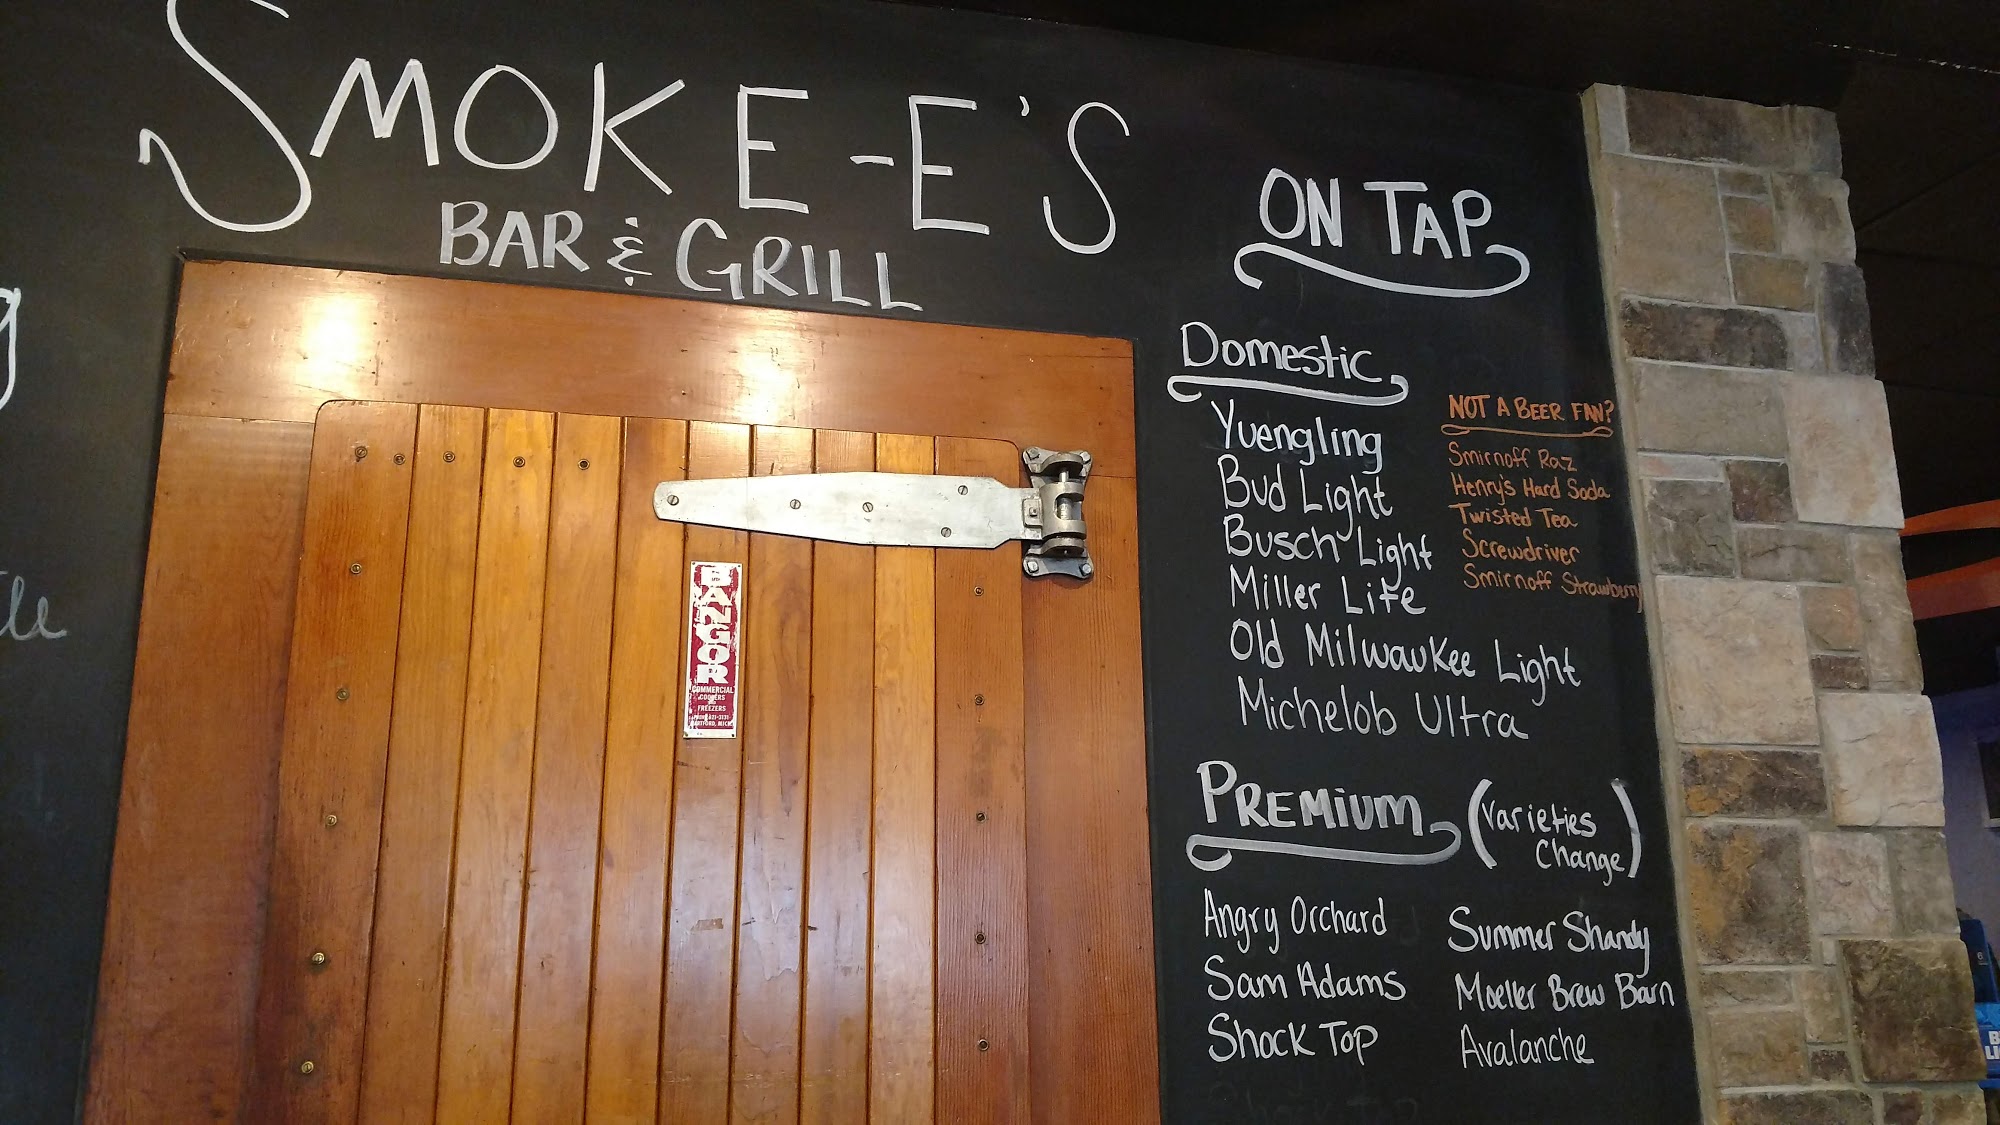 SMOKE-E'S
BAR & GRILL
ON TAP
Domestic
Yuengling
Bud Light
Busch Light
Miller Lite
Old Milwaukee Light
Michelob Ultra
NOT A BEER FAN?
Smirnoff Raz
Henry's Hard Soda
Twisted Tea
Screwdriver
Smirnoff Strawberry
PREMIUM (Varieties
Change)
Angry Orchard
Sam Adams
Shock Top
Summer Shandy
Moeller Brew Barn
Avalanche
BANGOR
COMMERCIAL
COOLERS
&
FREEZERS